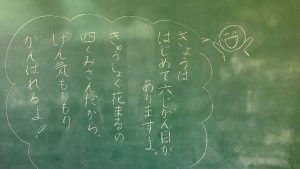 きょうは
はじめて六じかん目が
ありますよ。
きゅうしょく花まるの
四くみさんだから、
げん気もりもり
がんばれるよ!